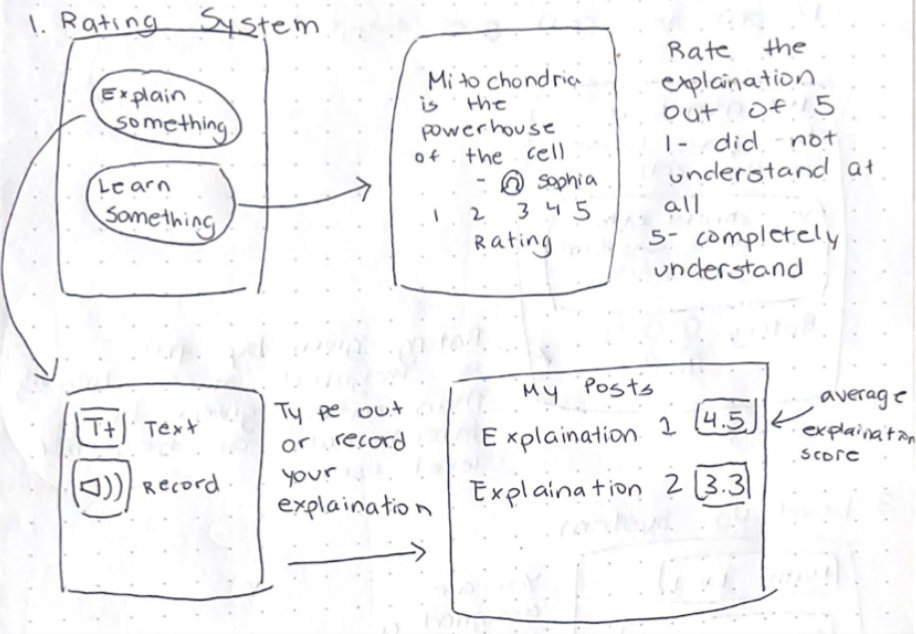 1. Rating System
Explain
something
Learn
something
Mitochondria
is the
powerhouse
of the cell
- sophia
1 2 3 4 5
Rating
Rate the
explaination
out of 5
1- did not
understand at
all
5- completely
understand
Tt Text
Record
Type out
or record
your
explaination
My Posts
Explaination 1 4.5
Explaination 2 3.3
average
explaination
score